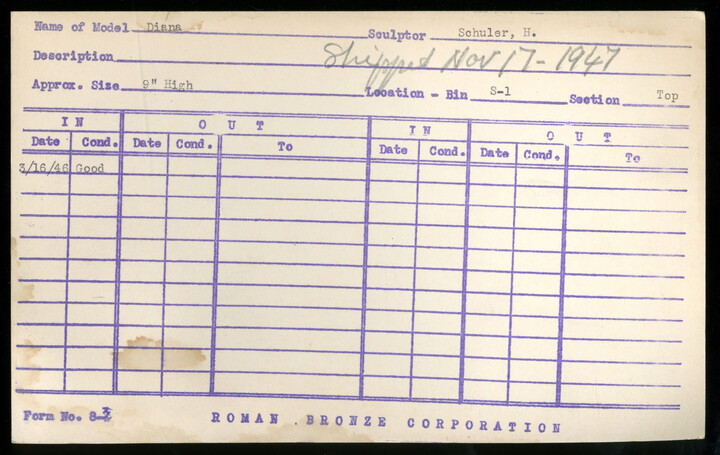 Name of Model Diana Sculptor Schuler, H.
Description Shipped Nov 17 - 1947
Approx. Size 9" High Location - Bin S-1 Section Top
IN OUT IN OUT
Date Cond. Date Cond. To Date Cond. Date Cond. To
3/16/46 Good
Form No. 8-3 ROMAN BRONZE CORPORATION